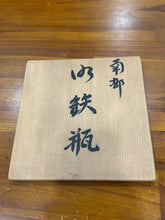 南部
鉄瓶